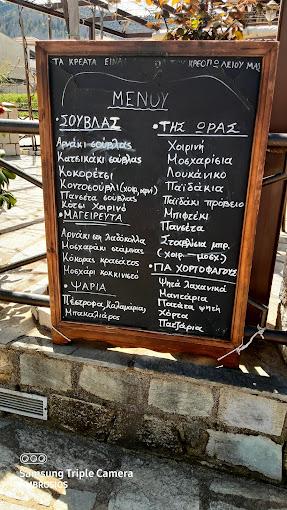 ΤΑ ΚΡΕΑΤΑ ΕΙΝΑΙ ΚΡΕΟΠΩΛΕΙΟΥ ΜΑΣ
ΜΕΝΟΥ
• ΣΟΥΒΛΑΣ
Αρνάκι σούβλας
Κατσικάκι σούβλας
Κοκορέτσι
Κοντοσούβλι (χοιρ, κοτ)
Πανσέτα σούβλας
Κότσι Χοιρινό
• ΜΑΓΕΙΡΕΥΤΑ
Αρνάκι στη λαδόκολλα
Μοσχαράκι στάμνας
Κόκορας κρασάτος
Μοσχάρι κοκκινιστό
• ΨΑΡΙΑ
Πέστροφα, Καλαμάρια,
Μπακαλιάρος
• ΤΗΣ ΩΡΑΣ
Χοιρινή
Μοσχαρίσια
Λουκάνικο
Παϊδάκια
Παϊδάκι πρόβειο
Μπιφτέκι
Πανσέτα
Σταβλίσια μπρ.
(χοιρ. - μοσχ.)
• ΓΙΑ ΧΟΡΤΟΦΑΓΟΥΣ
Ψητά λαχανικά
Μανιτάρια
Πατάτα ψητή
Χόρτα
Παντζάρια
Samsung Triple Camera
AMBROSIOS